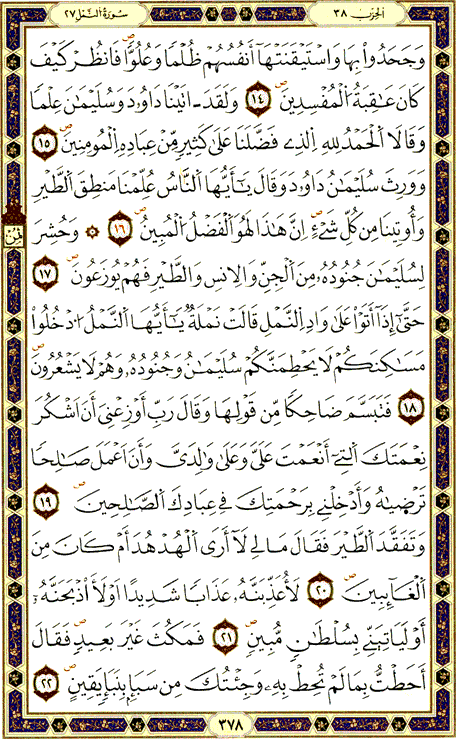 الحزب ٣٨
سورة النمل ٢٧
وَجَحَدُواْ بِهَا وَاسْتَيْقَنَتْهَآ أَنفُسُهُمْ ظُلْمٗا وَعُلُوّٗا فَانظُرْ كَيْفَ
كَانَ عَٰقِبَةُ الْمُفْسِدِينَ ١٤ وَلَقَدَ ـاتَيْنَا دَاوُۥدَ وَسُلَيْمَٰنَ عِلْمٗا
وَقَالَا الْحَمْدُ لِلهِ الذِے فَضَّلَنَا عَلَىٰ كَثِيرٖ مِّنْ عِبَادِهِ الْمُومِنِينَ ١٥
وَوَرِثَ سُلَيْمَٰنُ دَاوُۥدَ وَقَالَ يَٰٓأَيُّهَا النَّاسُ عُلِّمْنَا مَنطِقَ الطَّيْرِ
وَأُوتِينَا مِن كُلِّ شَےْءٍ اِنَّ هَٰذَا لَهُوَ الْفَضْلُ الْمُبِينُ ١٦ ۞ وَحُشِرَ
لِسُلَيْمَٰنَ جُنُودُهُۥ مِنَ الْجِنِّ وَالِانسِ وَالطَّيْرِ فَهُمْ يُوزَعُونَ ١٧
حَتَّىٰٓ إِذَآ أَتَوْاْ عَلَىٰ وَادِ النَّمْلِ قَالَتْ نَمْلَةٞ يَٰٓأَيُّهَا النَّمْلُ اُ۟دْخُلُواْ
مَسَٰكِنَكُمْ لَا يَحْطِمَنَّكُمْ سُلَيْمَٰنُ وَجُنُودُهُۥ وَهُمْ لَا يَشْعُرُونَ
١٨ فَتَبَسَّمَ ضَاحِكٗا مِّن قَوْلِهَا وَقَالَ رَبِّ أَوْزِعْنِيَ أَنَ اَشْكُرَ
نِعْمَتَكَ التِےٓ أَنْعَمْتَ عَلَيَّ وَعَلَىٰ وَٰلِدَيَّ وَأَنَ اَعْمَلَ صَٰلِحٗا
تَرْضَيٰهُ وَأَدْخِلْنِے بِرَحْمَتِكَ فِے عِبَادِكَ الصَّٰلِحِينَ ١٩
وَتَفَقَّدَ الطَّيْرَ فَقَالَ مَا لِے لَآ أَرَى الْهُدْهُدَ أَمْ كَانَ مِنَ
الْغَآئِبِينَ ٢٠ لَأُعَذِّبَنَّهُۥ عَذَابٗا شَدِيداً اَوْ لَأَاْذْبَحَنَّهُۥٓ
أَوْ لَيَاتِيَنِّے بِسُلْطَٰنٖ مُّبِينٖ ٢١ فَمَكُثَ غَيْرَ بَعِيدٖ فَقَالَ
أَحَطتُ بِمَا لَمْ تُحِطْ بِهِۦ وَجِئْتُكَ مِن سَبَإِۢ بِنَبَإٖ يَقِينٍ ٢٢
ثمن
٣٧٨